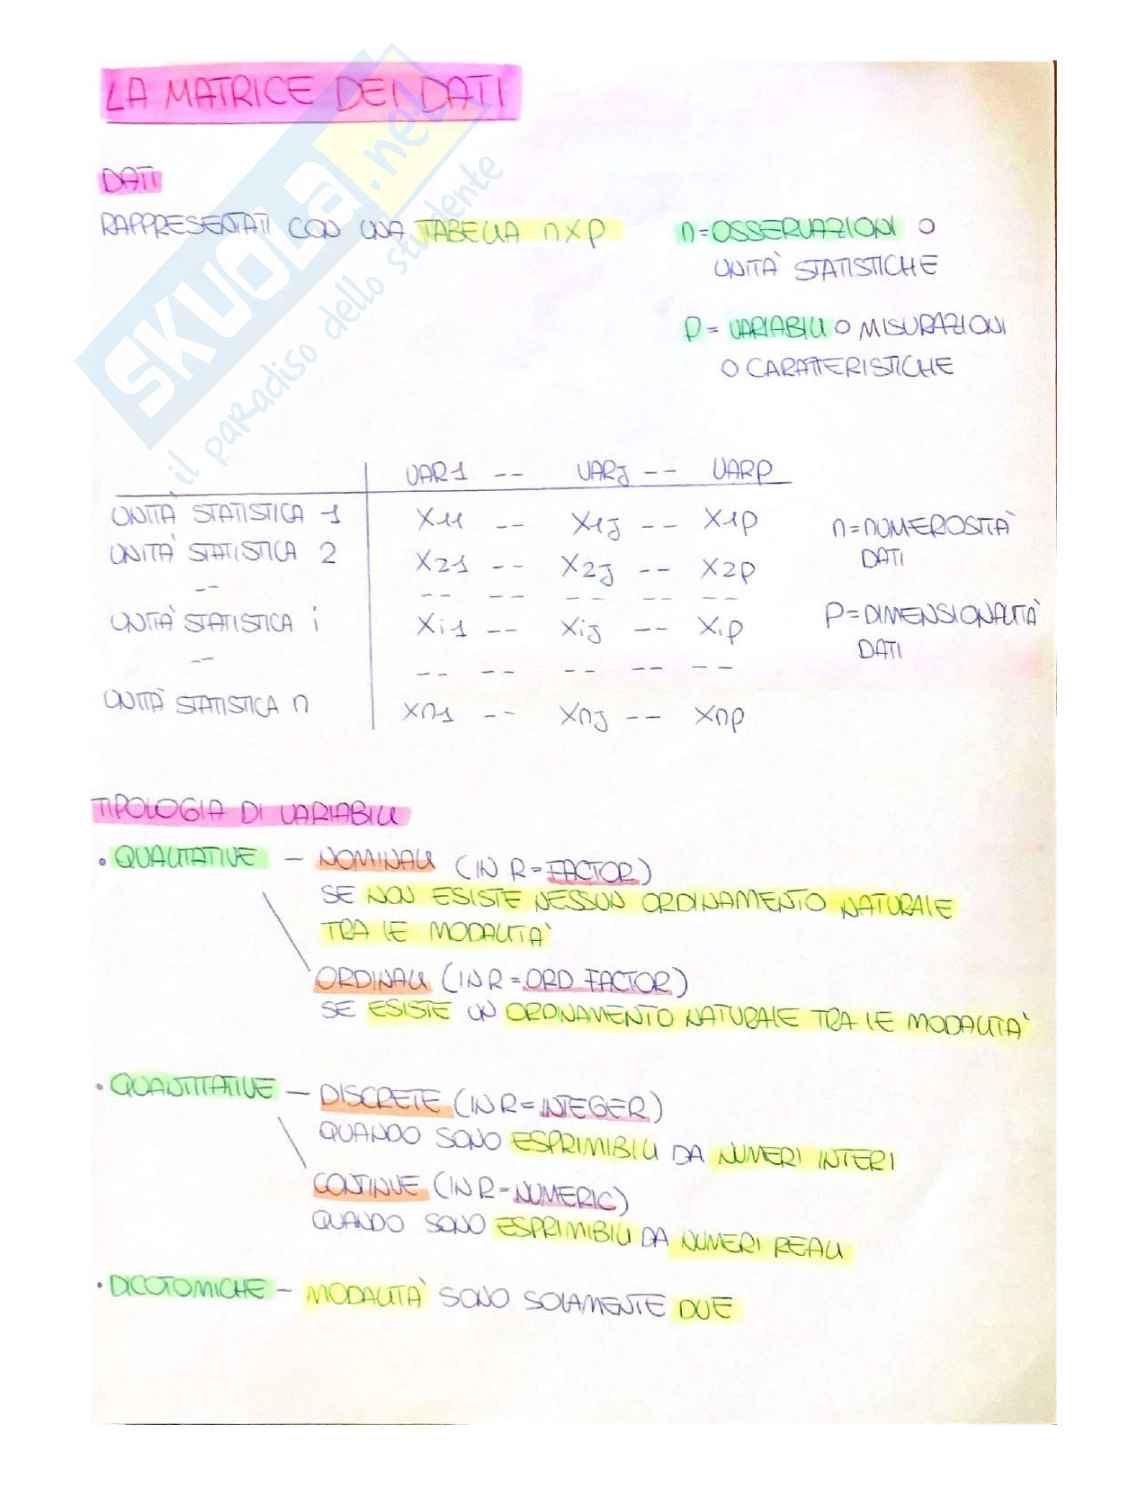 LA MATRICE DEI DATI
DATI
RAPPRESENTATI CON UNA TABELLA nXp
n=OSSERVAZIONI O
UNITÀ STATISTICHE
p= VARIABILI O MISURAZIONI
O CARATTERISTICHE
VAR1 -- VARJ -- VARP
UNITÀ STATISTICA 1 X11 -- X1J -- X1P
UNITÀ STATISTICA 2 X21 -- X2J -- X2P
-- -- -- -- -- --
UNITÀ STATISTICA i Xi1 -- XiJ -- XiP
-- -- -- -- -- --
UNITÀ STATISTICA n Xn1 -- XnJ -- XnP
n=NUMEROSITÀ
DATI
P=DIMENSIONALITÀ
DATI
TIPOLOGIA DI VARIABILI
• QUALITATIVE — NOMINALI (IN R=FACTOR)
SE NON ESISTE NESSUN ORDINAMENTO NATURALE
TRA LE MODALITÀ
ORDINALI (IN R=ORD FACTOR)
SE ESISTE UN ORDINAMENTO NATURALE TRA LE MODALITÀ
• QUANTITATIVE — DISCRETE (IN R=INTEGER)
QUANDO SONO ESPRIMIBILI DA NUMERI INTERI
CONTINUE (IN R=NUMERIC)
QUANDO SONO ESPRIMIBILI DA NUMERI REALI
• DICOTOMICHE — MODALITÀ SONO SOLAMENTE DUE
SKUOLA.net
il paradiso dello studente